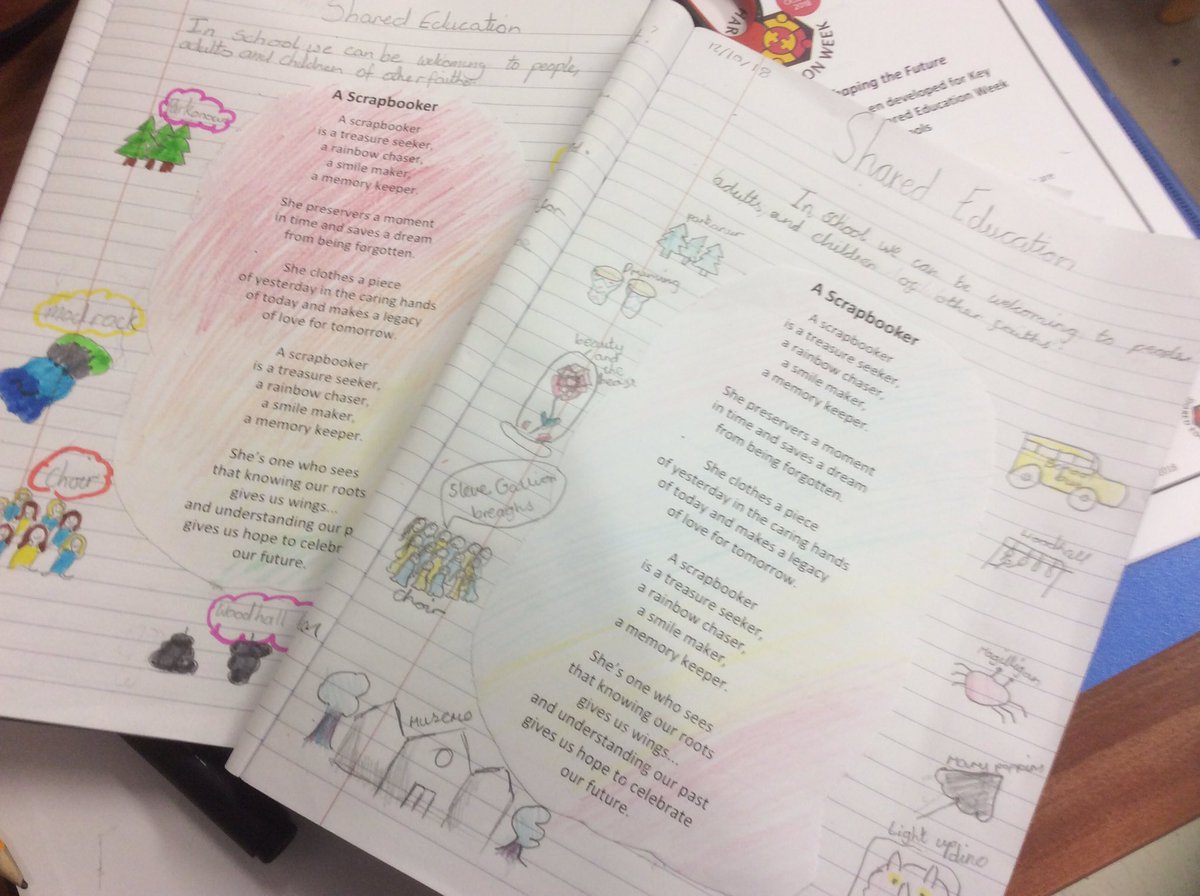 Shared Education
In school we can be welcoming to people,
adults and children of other faiths.
A Scrapbooker
A scrapbooker
is a treasure seeker,
a rainbow chaser,
a smile maker,
a memory keeper.
She preservers a moment
in time and saves a dream
from being forgotten.
She clothes a piece
of yesterday in the caring hands
of today and makes a legacy
of love for tomorrow.
A scrapbooker
is a treasure seeker,
a rainbow chaser,
a smile maker,
a memory keeper.
She's one who sees
that knowing our roots
gives us wings...
and understanding our p
gives us hope to celebr
our future.
mad rock
choir
Woodhall
for
12/10/18
Shared Education
In school we can be welcoming to people
adults, and children of other faiths.
parkanaur
Drumming
beauty
and
the
beast
Steve Gallion
breaghs
choir
MUSEMO
A Scrapbooker
A scrapbooker
is a treasure seeker,
a rainbow chaser,
a smile maker,
a memory keeper.
She preservers a moment
in time and saves a dream
from being forgotten.
She clothes a piece
of yesterday in the caring hands
of today and makes a legacy
of love for tomorrow.
A scrapbooker
is a treasure seeker,
a rainbow chaser,
a smile maker,
a memory keeper.
She's one who sees
that knowing our roots
gives us wings...
and understanding our past
gives us hope to celebrate
our future.
woodhall
Magilligan
Mary poppins
Light up dino
ON WEEK
aping the Future
en developed for Key
ared Education Week
ools
2018